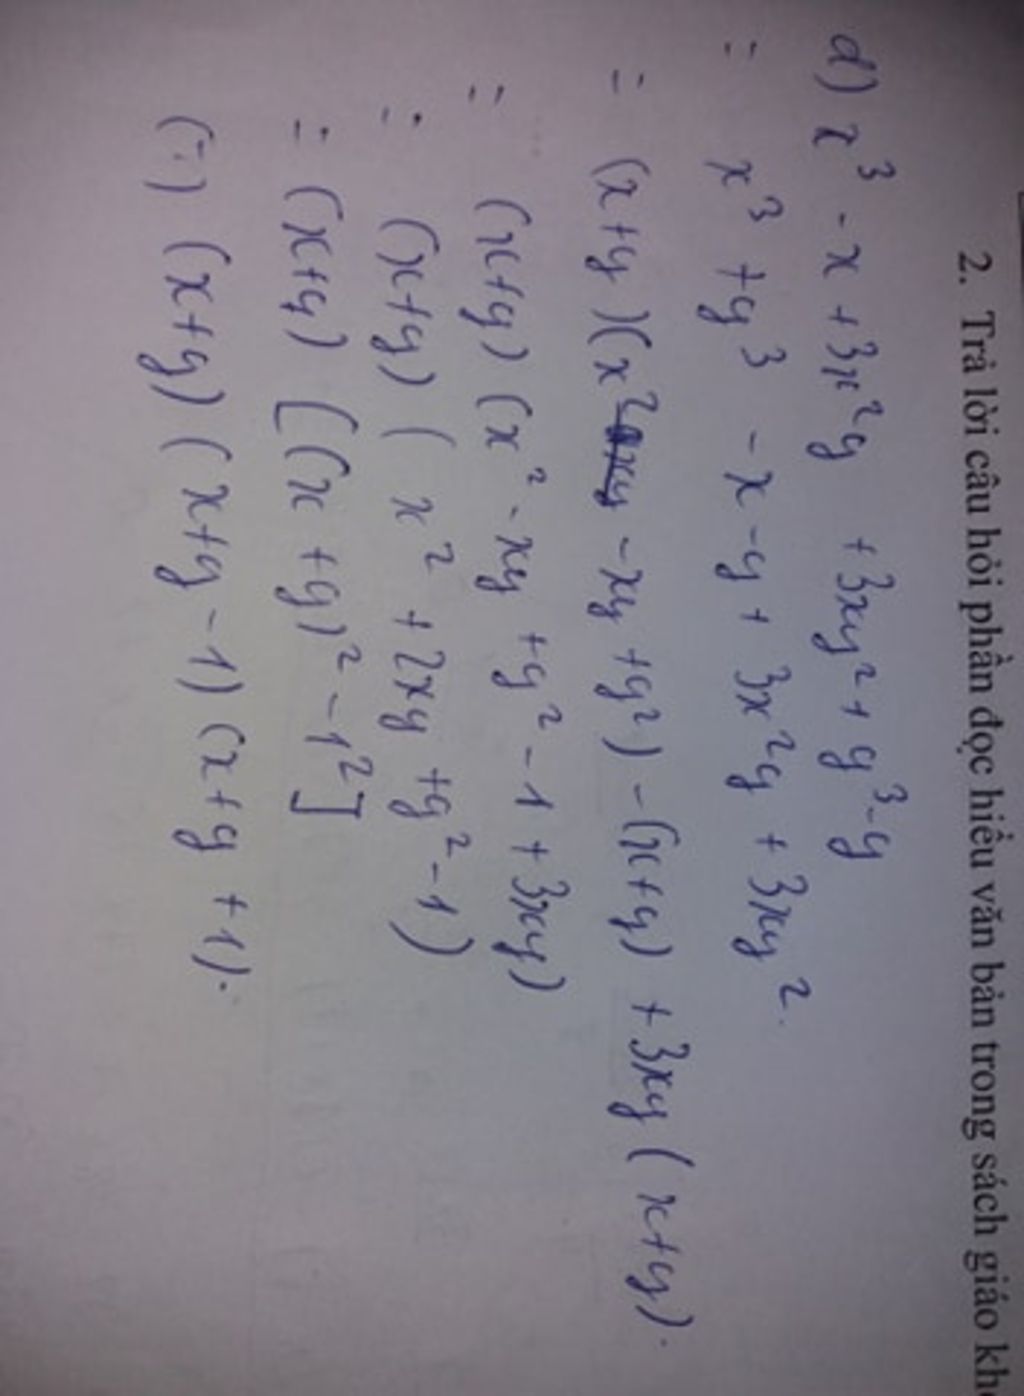 2. Trả lời câu hỏi phần đọc hiểu văn bản trong sách giáo kh
d) x³ - x + 3x²y + 3xy² + y³ - y
= x³ + y³ - x - y + 3x²y + 3xy².
= (x+y)(x² - xy + y²) - (x+y) + 3xy(x+y).
= (x+y)(x² - xy + y² - 1 + 3xy)
= (x+y)(x² + 2xy + y² - 1)
= (x+y)[(x+y)² - 1²]
(=) (x+y)(x+y-1)(x+y+1).